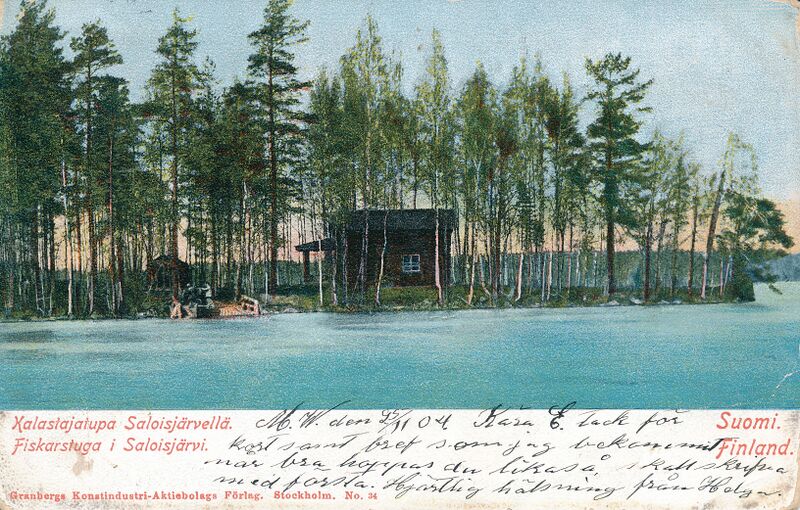 Kalastajatupa Saloisjärvellä.
Fiskarstuga i Saloisjärvi.
Suomi.
Finland.
M. W. den 9/11 04 Kära E. tack för
kort samt bref som jag bekommit
mår bra hoppas du likaså, skall skrifva
med första. Hjärtlig hälsning från Helga.
Granbergs Konstindustri-Aktiebolags Förlag. Stockholm. No. 34